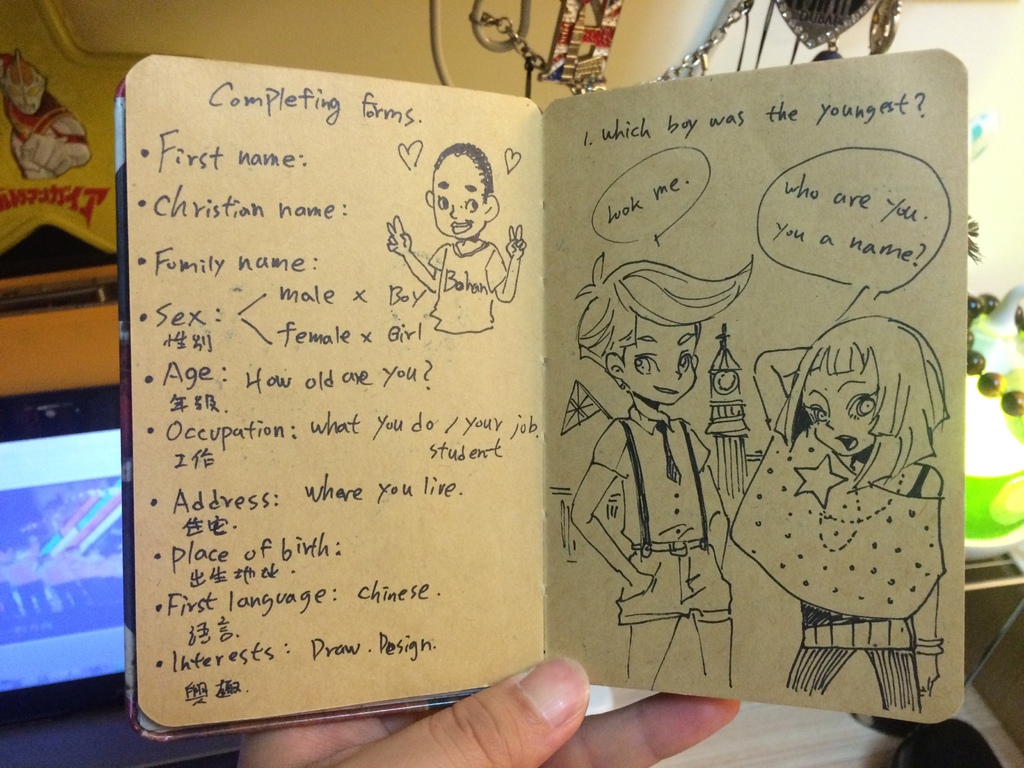 Completing forms.
• First name:
• Christian name:
• Family name:
• Sex: male x Boy
female x Girl
性別
• Age: How old are you?
年級.
• Occupation: what you do / your job.
student
工作
• Address: where you live.
住宅.
• place of birth:
出生地址.
• First language: chinese.
語言.
• Interests: Draw. Design.
興趣.
Bohan
1. which boy was the youngest?
look me.
who are you.
you a name?
ルトラマンガイア
DUBAI